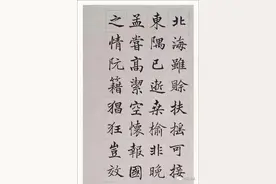 北海雖賒扶搖可接
東隅已逝桑榆非晚
孟嘗高潔空懷報國
之情阮籍猖狂豈效